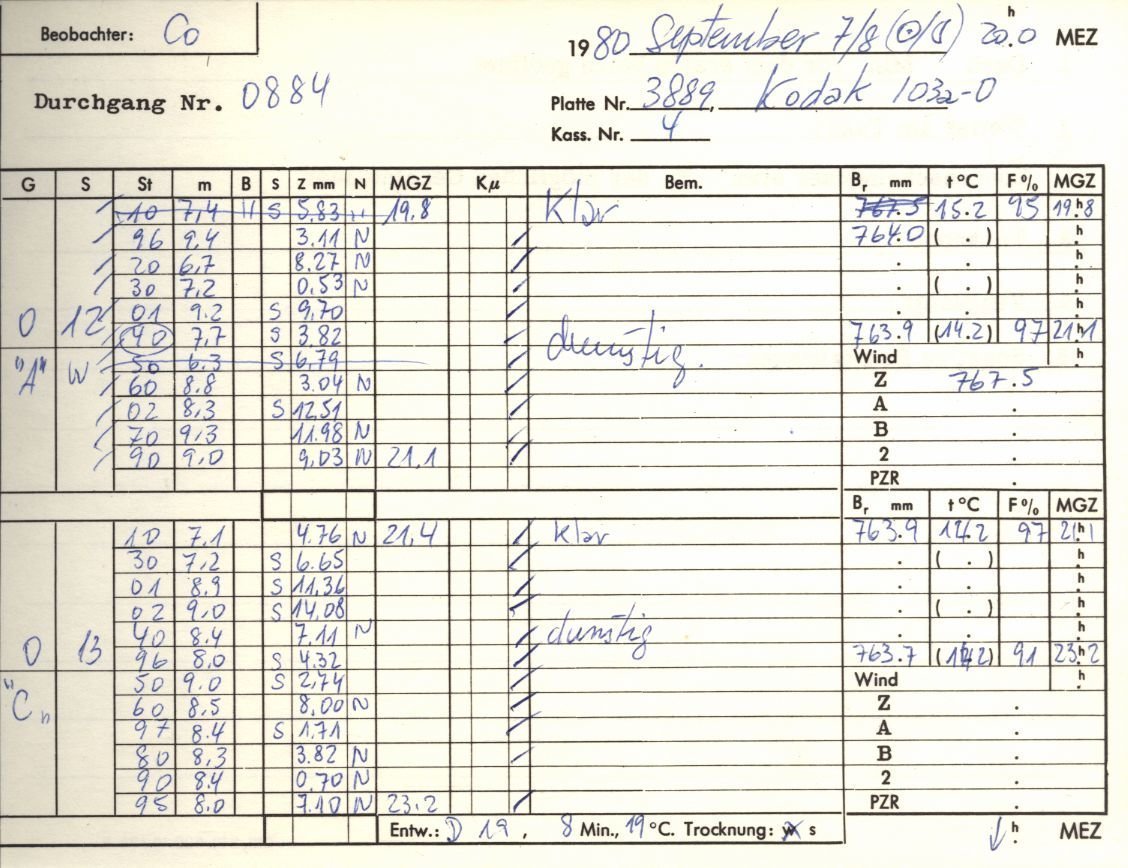 Beobachter: Co
1980 September 7/8 (☉/☾) 20.0 h MEZ
Durchgang Nr. 0884
Platte Nr. 3889, Kodak 103a-O
Kass. Nr. 4
G S St m B S Z mm N MGZ Kμ Bem. Br mm t °C F % MGZ
10 7,4 H S 5.83 H 19.8 Klar 767.5 15.2 95 19.h8
96 9.4 3.11 N 764.0 ( . ) h
20 6,7 8.27 N . . h
30 7,2 0,53 N . ( . ) h
01 9.2 S 9,70 . . h
O 12 40 7,7 S 3.82 dunstig. 763.9 (14.2) 97 21.h1
"A" W 50 6.3 S 6,79 Wind h
60 8.8 3.04 N Z 767.5
02 8,3 S 12.51 A .
70 9,3 11.98 N B .
90 9,0 9,03 N 21,1 2 .
PZR
Br mm t °C F % MGZ
10 7.1 4.76 N 21,4 klar 763.9 14.2 97 21.h1
30 7,2 S 6.65 . ( . ) h
01 8.9 S 11,36 . . h
02 9.0 S 14,08 . ( . ) h
40 8.4 7.11 N dunstig . . h
O 13 96 8,0 S 4.32 763.7 (14.2) 91 23.h2
"C" 50 9.0 S 2,74 Wind h
60 8,5 8,00 N Z .
97 8.4 S 1.71 A .
80 8,3 3.82 N B .
90 8.4 0,70 N 2 .
95 8.0 7.10 N 23.2 PZR .
Entw.: D 19, 8 Min., 19 °C. Trocknung: w s h MEZ